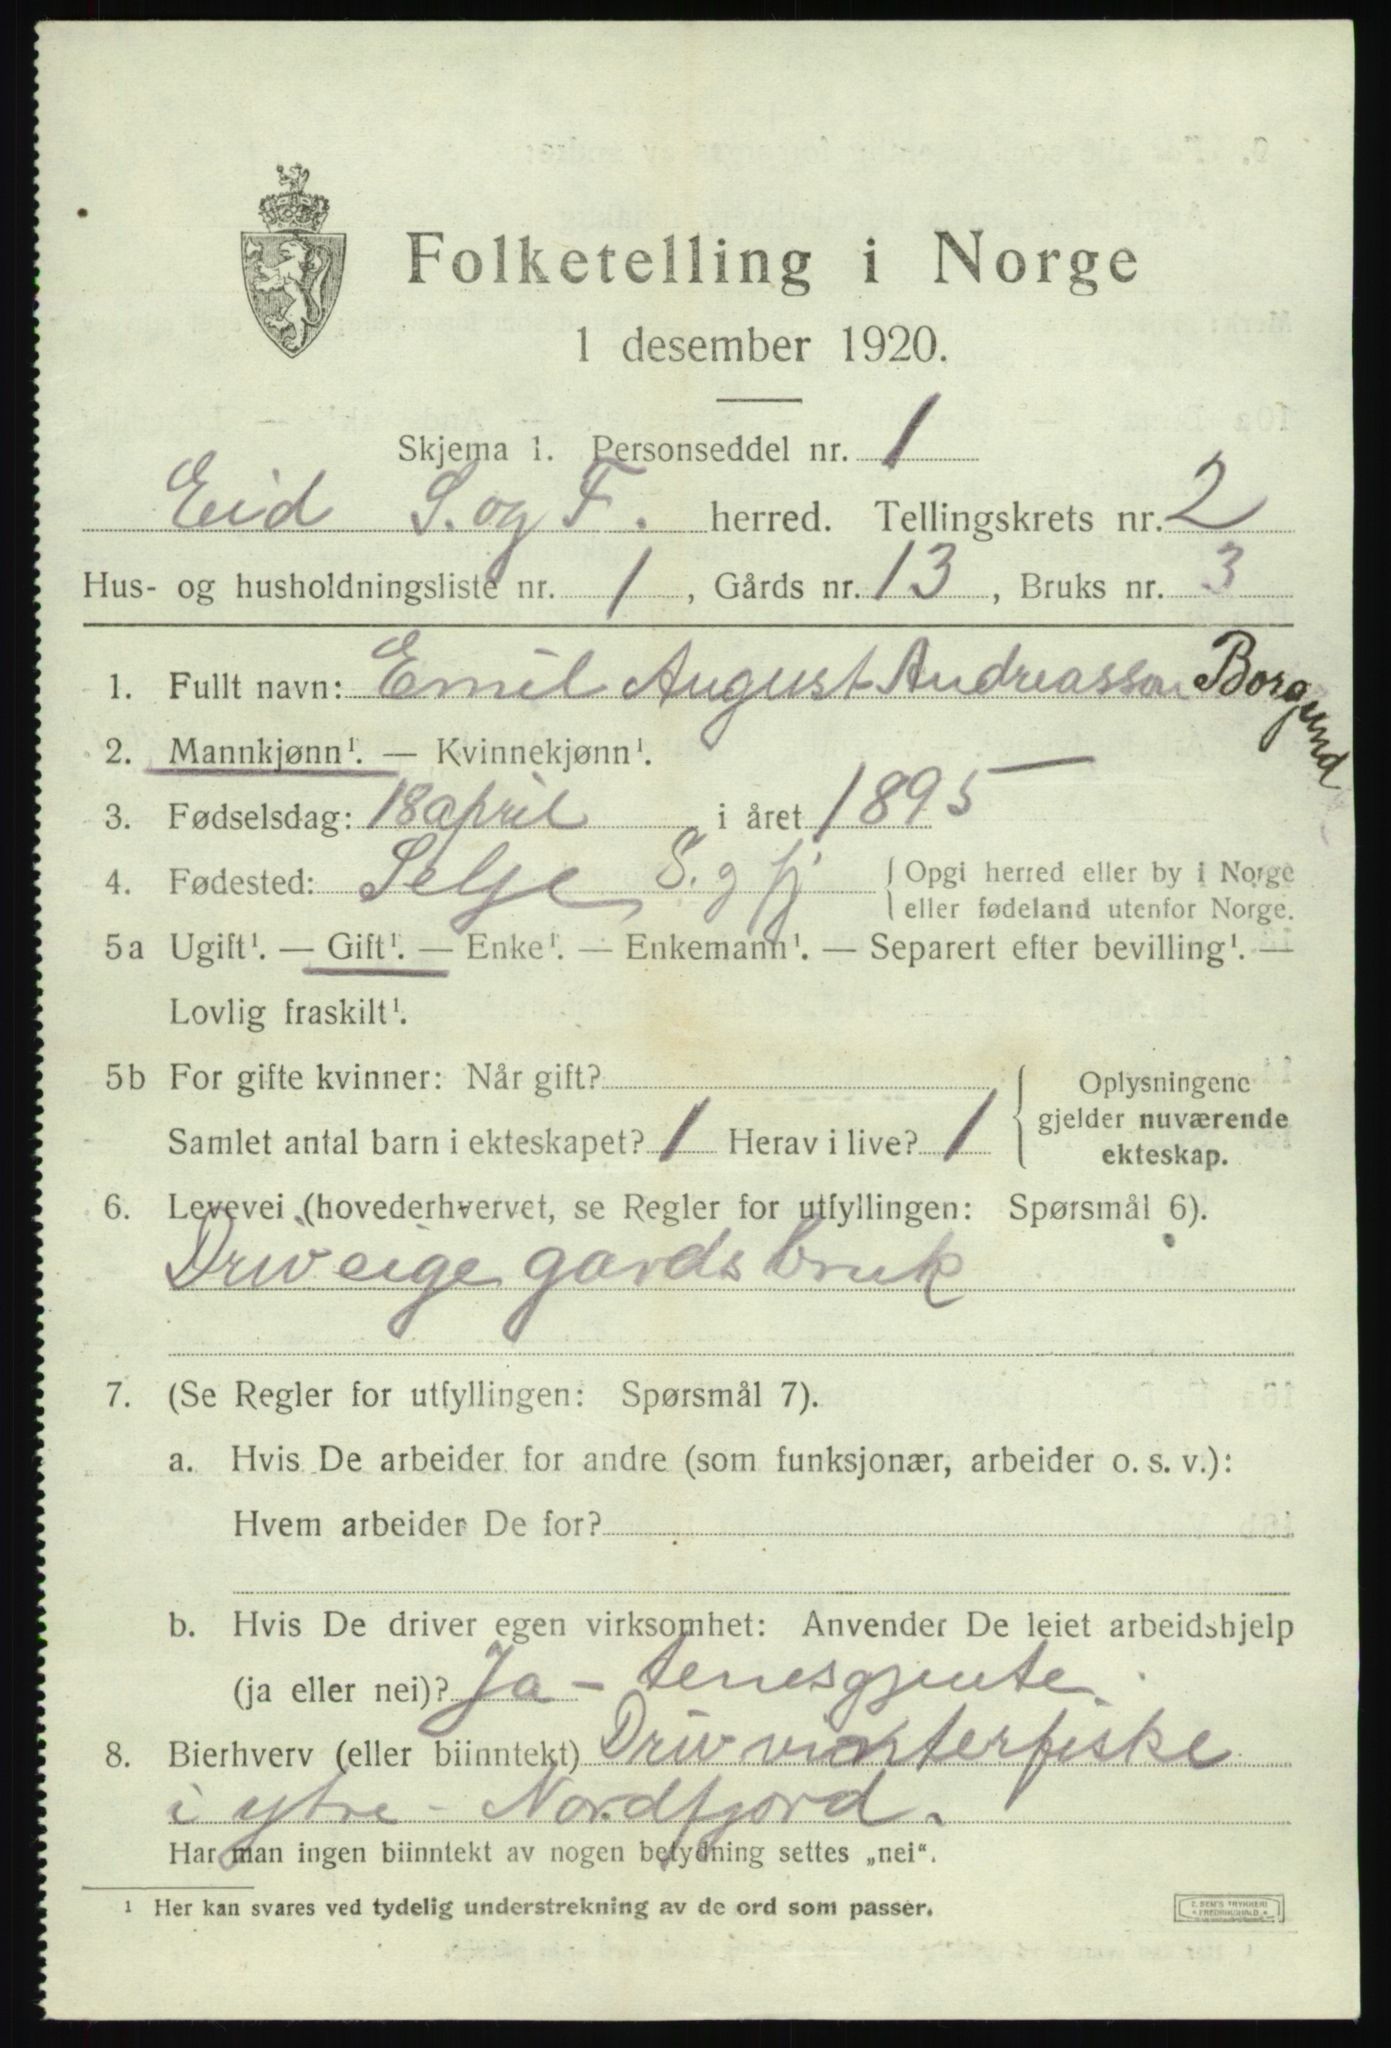 Folketelling i Norge
1 desember 1920.
Skjema 1. Personseddel nr. 1
Eid S. og F. herred. Tellingskrets nr. 2
Hus- og husholdningsliste nr. 1, Gårds nr. 13, Bruks nr. 3
1. Fullt navn: Emil August Andreasson Borgund
2. Mannkjønn¹. — Kvinnekjønn¹.
3. Fødselsdag: 18 april i året 1895
4. Fødested: Selje S. g fj { Opgi herred eller by i Norge
eller fødeland utenfor Norge.
5a Ugift¹. — Gift¹. — Enke¹. — Enkemann¹. — Separert efter bevilling¹. —
Lovlig fraskilt¹.
5b For gifte kvinner: Når gift? { Oplysningene
gjelder nuværende
Samlet antal barn i ekteskapet? 1 Herav i live? 1 ekteskap.
6. Levevei (hovederhvervet, se Regler for utfyllingen: Spørsmål 6).
Driv eige gards bruk
7. (Se Regler for utfyllingen: Spørsmål 7).
a. Hvis De arbeider for andre (som funksjonær, arbeider o. s. v.):
Hvem arbeider De for?
b. Hvis De driver egen virksomhet: Anvender De leiet arbeidshjelp
(ja eller nei)? Ja - tenesgjente.
8. Bierhverv (eller biinntekt) Driv vinterfiske
i ytre - Nordfjord.
Har man ingen biinntekt av nogen betydning settes „nei“.
¹ Her kan svares ved tydelig understrekning av de ord som passer.
E. SEM'S TRYKKERI
FREDRIKSHALD